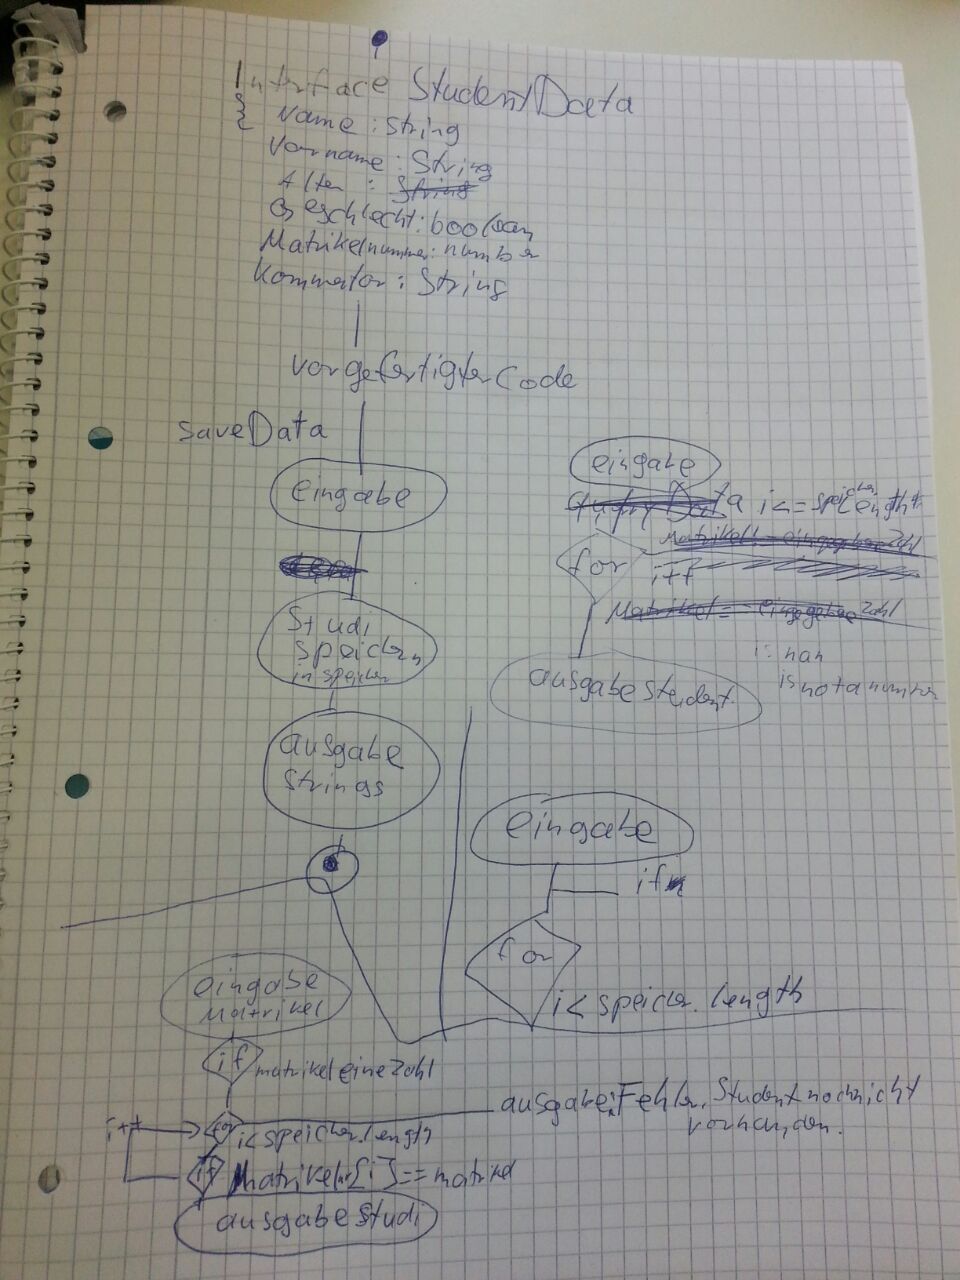 Interface StudentData
{ Name : String
Vorname : String
Alter : String
Geschlecht : boolean
Matrikelnummer : number
Kommentar : String
vorgefertigter Code
saveData
eingabe
Studi
speichern
in speicher
ausgabe
strings
eingabe
QueryData i<=speicher.length
Matrikel!=eingegebene Zahl
for
i++
Matrikel == eingegebene Zahl
is nan
is not a number
ausgabe Student
eingabe
if
for
i< speicher.length
eingabe
Matrikel
if matrikel eine Zahl
ausgabe: Fehler, Student noch nicht
vorhanden.
i++
for i<speicher.length
if Matrikelnr[i]==matrikel
ausgabe Studi